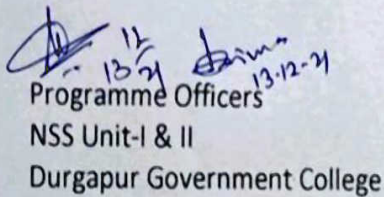 12
13 21
13.12-21
Programme Officers
NSS Unit-I & II
Durgapur Government College